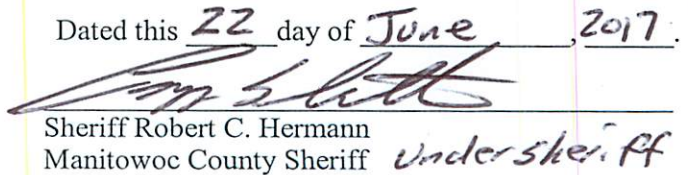 Dated this 22 day of June, 2017.
Sheriff Robert C. Hermann
Manitowoc County Sheriff Undersheriff